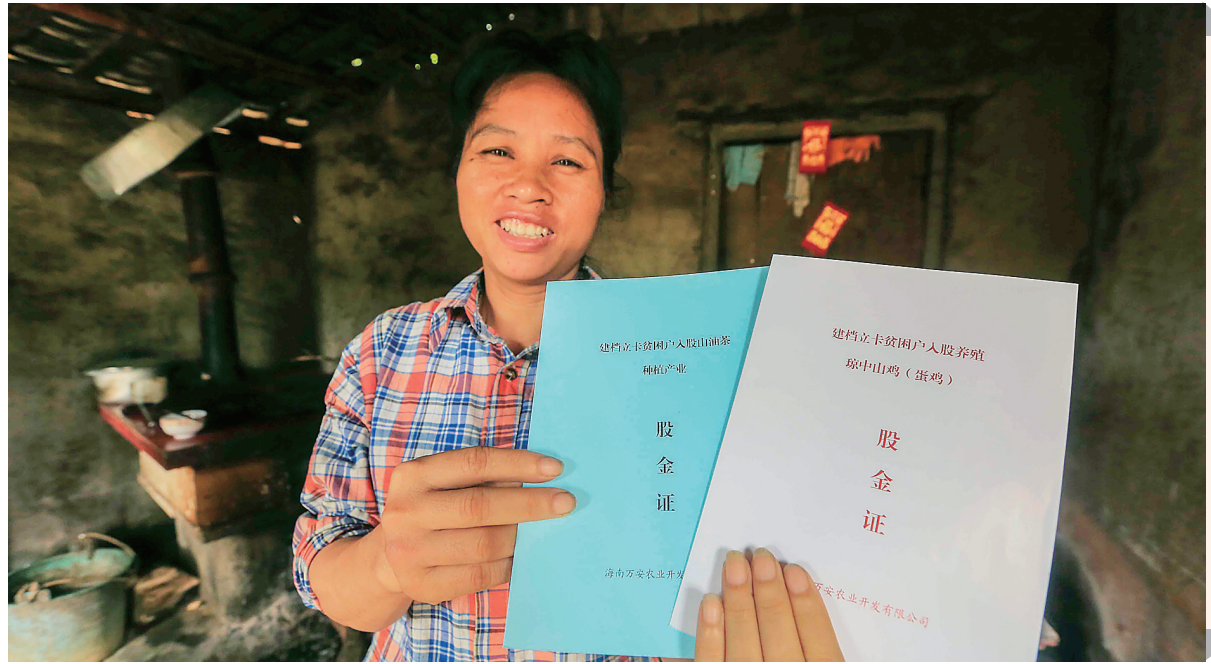 建档立卡贫困户入股山油茶
种植产业
股
金
证
海南万安农业开发
建档立卡贫困户入股养殖
琼中山鸡（蛋鸡）
股
金
证
万安农业开发有限公司